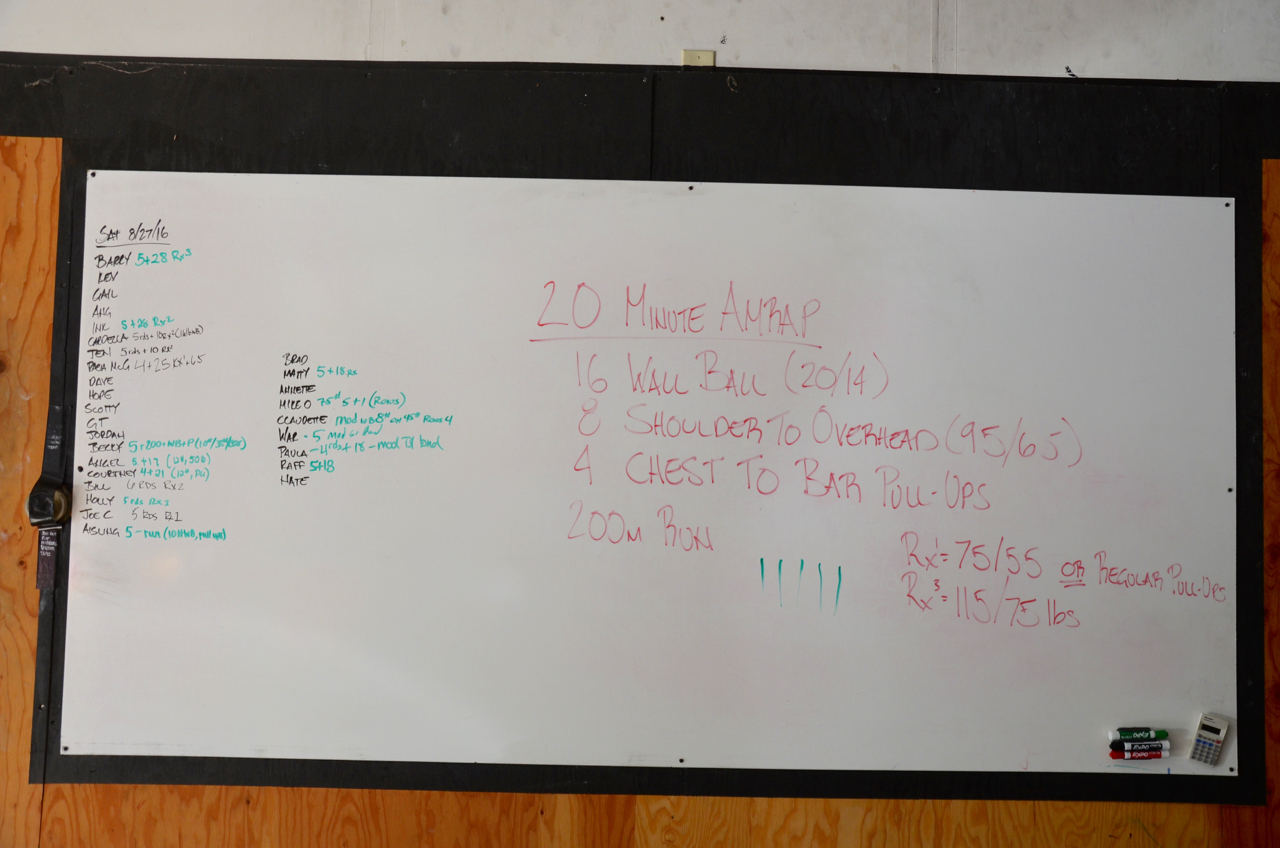 SAT 8/27/16
BARRY 5+28 Rx3
KEV
GAIL
ANG
INK 5+28 Rx2
JEN 5rds+10 Rx1
PAPA McG 4+25 Rx1+65
DAVE
HOPE
SCOTTY
GT
JORDAN
BECKY 5+200+WB+P
ANGEL 5+17
COURTNEY 4+21
BILL 6 RDS Rx2
HOLLY 5 rds Rx1
JOE C 5 RDS Rx1
AISLING 5-run (10#WB, pull ups)
BRAD
MATTY 5+18 Rx
ANNETTE
MIKE O 75# 5+1 (Rows)
CLAUDETTE mod WB 8# OH 45# Rows 4
WAR - 5 mod
PAULA - 4 rds + 18 - mod
RAFF 5+18
NATE
20 MINUTE AMRAP
16 WALL BALL (20/14)
8 SHOULDER TO OVERHEAD (95/65)
4 CHEST TO BAR PULL-UPS
200M RUN
Rx1=75/55 OR REGULAR PULL-UPS
Rx3=115/75 lbs
EXPO
EXPO
EXPO